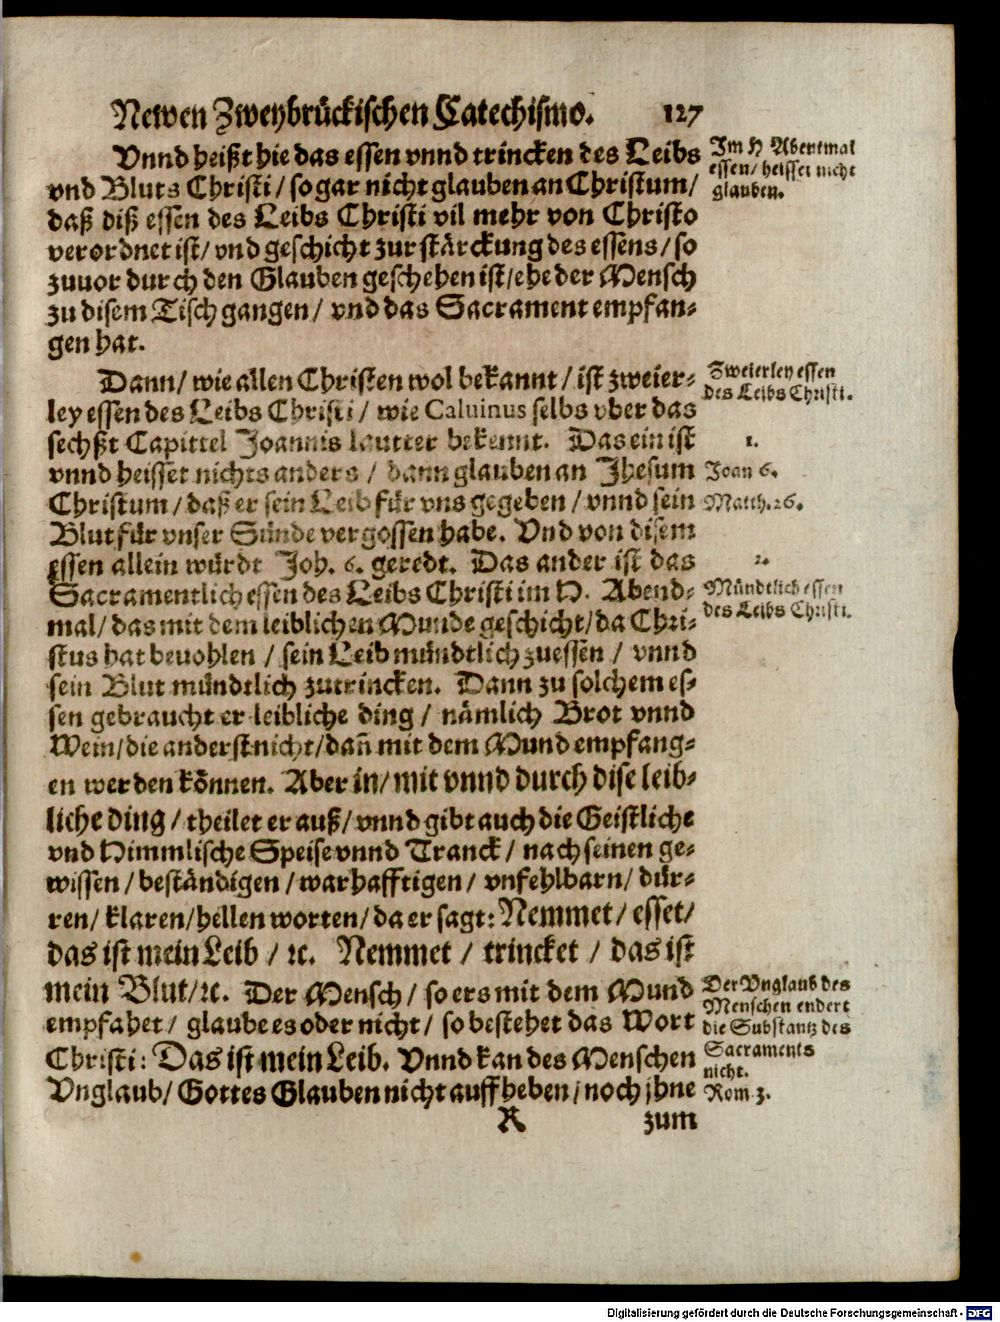 Newen Zweybrückischen Catechismo. 127
Vnnd heißt hie das essen vnnd trincken des Leibs
vnd Bluts Christi / so gar nicht glauben an Christum /
daß diß essen des Leibs Christi vil mehr von Christo
verordnet ist / vnd geschicht zur stärckung des essens / so
zuuor durch den Glauben geschehen ist / ehe der Mensch
zu disem Tisch gangen / vnd das Sacrament empfan-
gen hat.
Im H Abentmal
essen / heisset nicht
glauben.
Dann / wie allen Christen wol bekannt / ist zweier-
ley essen des Leibs Christi / wie Caluinus selbs vber das
sechßt Capittel Joannis lautter bekennt. Das ein ist
vnnd heisset nichts anders / dann glauben an Jhesum
Christum / daß er sein Leib für vns gegeben / vnnd sein
Blut für vnser Sünde vergossen habe. Vnd von disem
essen allein würdt Joh. 6. geredt. Das ander ist das
Sacramentlich essen des Leibs Christi im H. Abend-
mal / das mit dem leiblichen Munde geschicht / da Chri-
stus hat beuohlen / sein Leib mündtlich zuessen / vnnd
sein Blut mündtlich zutrincken. Dann zu solchem es-
sen gebraucht er leibliche ding / nämlich Brot vnnd
Wein / die anderst nicht / dañ mit dem Mund empfang-
en werden können. Aber in / mit vnnd durch dise leib-
liche ding / theilet er auß / vnnd gibt auch die Geistliche
vnd Himmlische Speise vnnd Tranck / nach seinen ge-
wissen / beständigen / warhafftigen / vnfehlbarn / dür-
ren / klaren / hellen worten / da er sagt: Nemmet / esset /
das ist mein Leib / ꝛc. Nemmet / trincket / das ist
mein Blut / ꝛc. Der Mensch / so ers mit dem Mund
empfahet / glaube es oder nicht / so bestehet das Wort
Christi: Das ist mein Leib. Vnnd kan des Menschen
Vnglaub / Gottes Glauben nicht auffheben / noch jhne
Zweierley essen
des Leibs Christi.
1.
Joan 6.
Matth. 26.
2.
Mündtlich essen
des Leibs Christi.
Der Vnglaub des
Menschen endert
die Substantz des
Sacraments
nicht.
Rom 3.
R zum
Digitalisierung gefördert durch die Deutsche Forschungsgemeinschaft - DFG